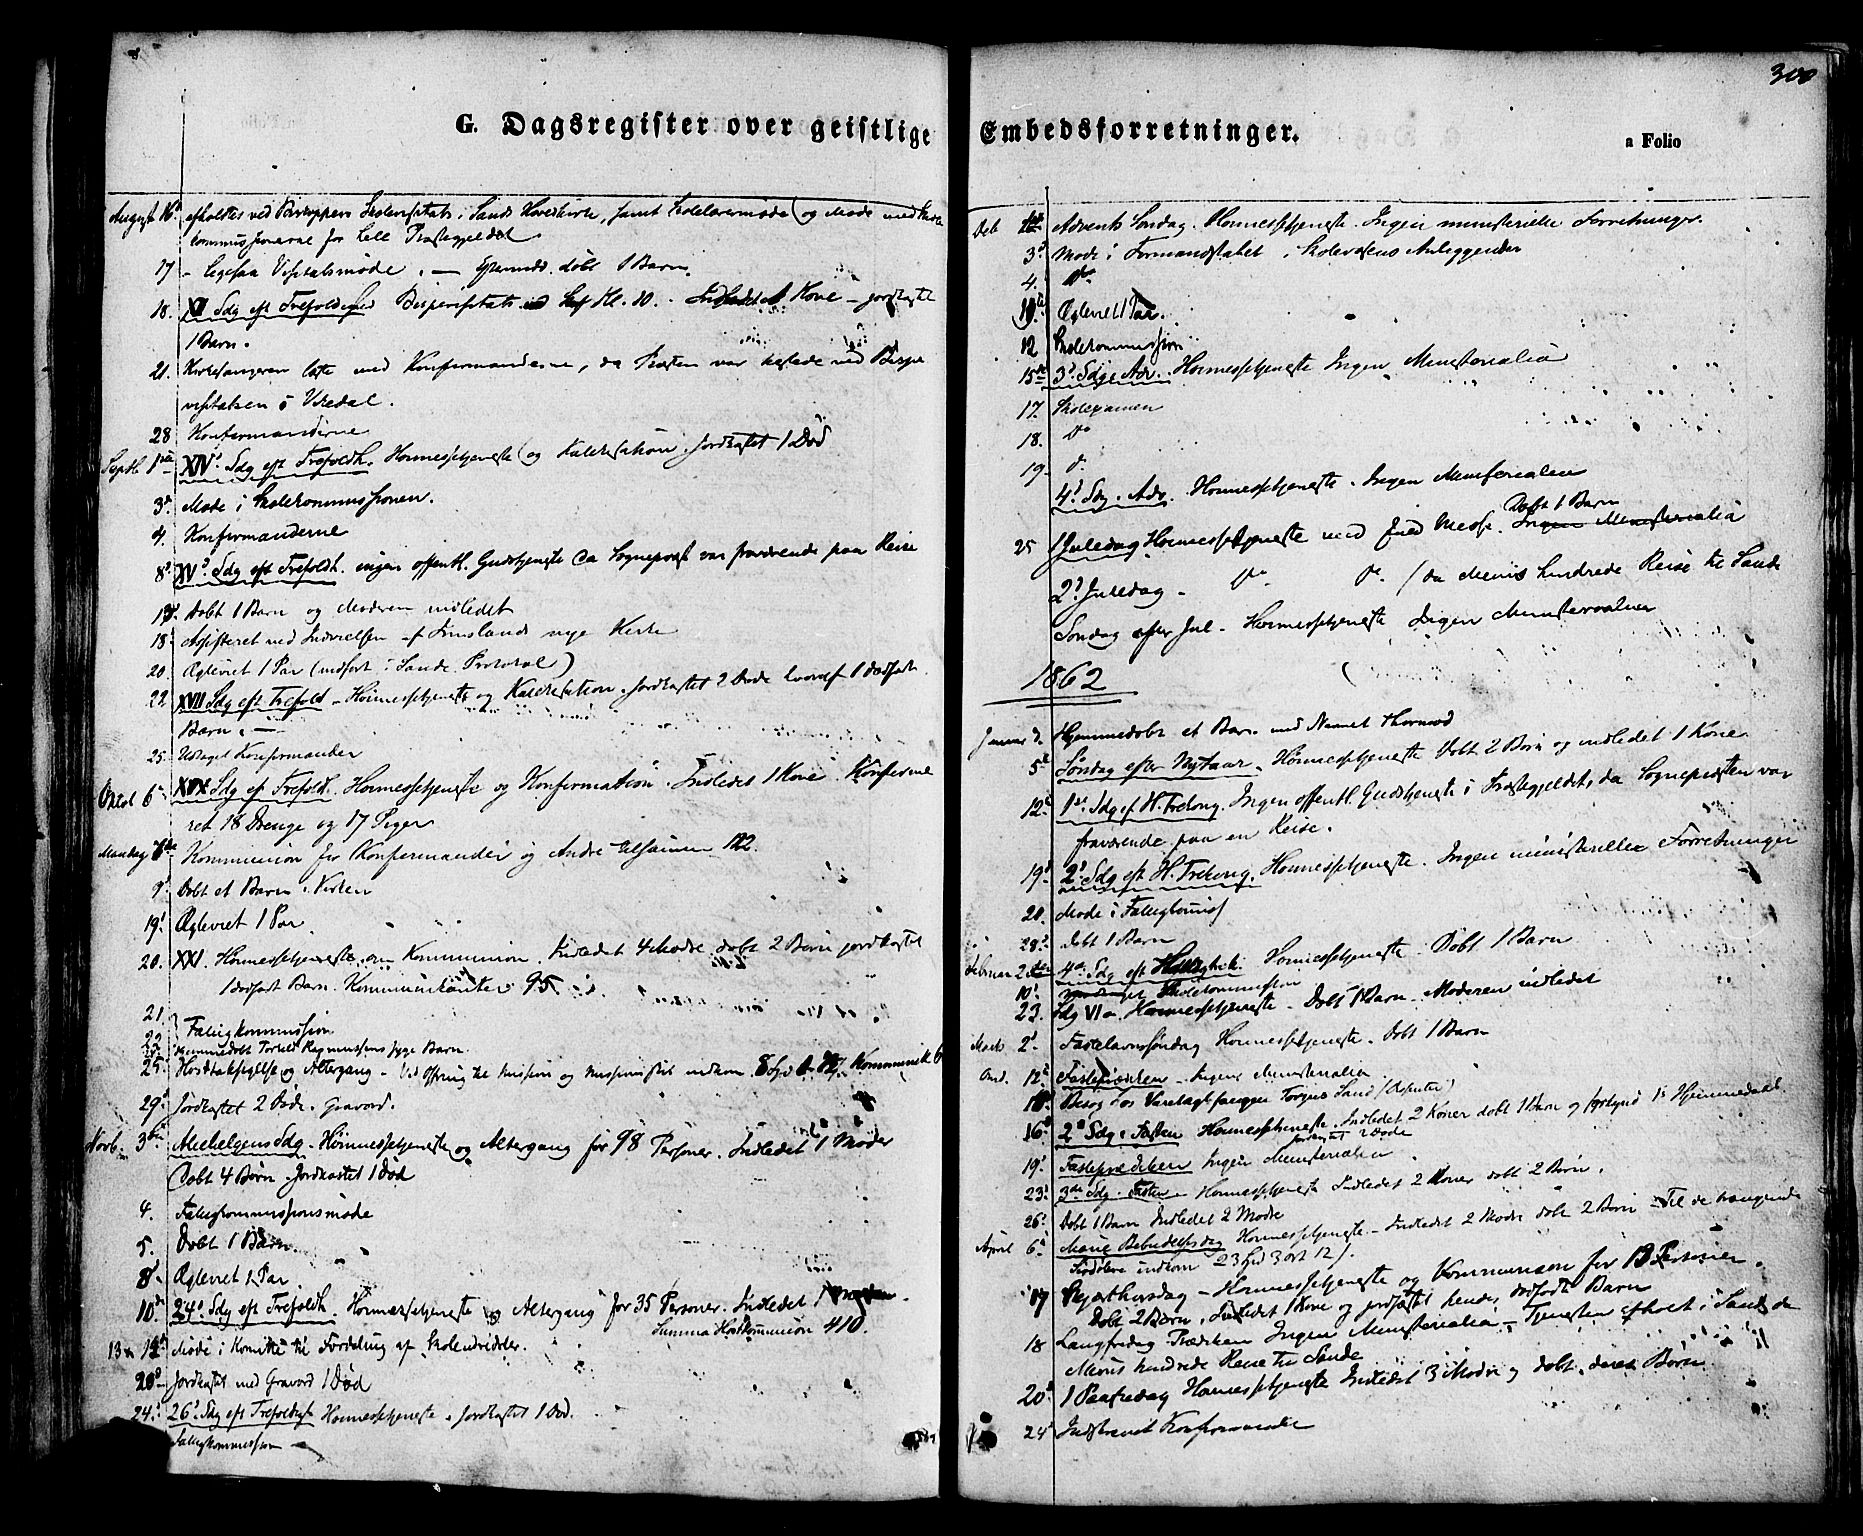 300
G. Dagsregister over geistlige
August 16. afholdtes ved Biskoppen Skolevisitats i Sands Hovedkirke, samt Skolelærermøde og Møde med Skole
kommissionerne for hele Præstegjeldet
17 - ligesaa Visitatsmøde. — Eftermidd. døbt 1 Barn.
18. XII Sdg eft Trefoldighed Bispevisitats Kl. 10. - Indledet 1 Kone - jordkastet
1 Barn.
21. Kirkesangeren læste med Konfirmanderne, da Præsten var tilstede ved Bispe
visitatsen i
28 Konfirmanderne
Septb 1ste XIV Sdg eft Trefoldh. Hovmessetjeneste og Katekisation. Jordkastet 1 Død
3. Møde i Skolekommissionen.
4. Konfirmanderne
8. XV Sdg eft Trefoldh. ingen offentl. Gudstjeneste da Sognepræst var fraværende paa Reise
Døbt 1 Barn og Moderen indledet
18. Assisteret ved Indvielsen af Imslands nye Kirke
20. Ægteviet 1 Par (indført i Sande Protokol)
22 XVII Sdg eft Trefold - Hovmessetjeneste og Katekisation. Jordkastet 2 Døde hvoraf 1 dødfødt
Barn. —
25. Udtaget Konfirmander
Oktob 6 XIX Sdg ef Trefold. Hovmessetjeneste og Konfirmation. Indledet 1 Kone. Konfirme
ret 18 Drenge og 17 Piger
Mandag Kommunion for Konfirmander og Andre tilsammen 122.
9. Døbt et Barn i Kirken
19. Ægteviet 1 Par
20. XXI. Hovmessetjeneste og Kommunion. Indledet 4 Mødre døbt 2 Børn jordkastet
1 dødfødt Barn. Kommunikanter 95.
21.
22 Fattigkommission
Hjemmedøbt Torkel Rasmussens syge Barn.
25. Høsttaksigelse og Altergang - Ved Ofring til Mission og indkom Kommunik 6
29. Jordkastet 2 Døde. Gravord.
Novb. 3die Allehelgens Sdg. Hovmessetjeneste og Altergang for 98 Personer. Indledet 1 Moder
Døbt 4 Børn. Jordkastet 1 Død
4. Fattigkommissionsmøde
5. Døbt 1 Barn.
8. Ægteviet 1 Par
10. 24. Sdg eft Trefoldh. Hovmessetjeneste og Altergang for 35 Personer. Indledet 1
Summa Høstkommunion 410.
13 Møde i Komitte til Fordeling af Skoleudredsler.
20. Jordkastet med Gravord 1 Død
24. 26. Sdg eft Trefoldigh Hovmessetjeneste. Jordkastet 1 Død.
Fattigkommission —
Embedsforretninger.
a Folio
Deb 1ste Advents Søndag. Hovmessetjeneste. Ingen ministerielle Forretninger
3. Møde i Formandskabet i Skolevæsens Anliggender
4. Do
Ægteviet 1 Par.
12 Skolekommission
15de 3. Sdg i Adv. Hovmessetjeneste Ingen Ministerialia
17. Skolexamen
18. Do
19. Do
4. Sdg i Adv. Hovmessetjeneste. Ingen Ministerialia
Døbt 1 Barn
25 1 Juledag Hovmessetjeneste med fuld Messe. Ingen Ministerialia
2. Juledag - Do Do (da Menis hindrede Reise til Sande
Søndag efter Jul - Hovmessetjeneste Ingen Ministerialier
1862
Januar Hjemmedøbt et Barn med Navnet Thormod
5 Søndag efter Nytaar. Hovmessetjeneste Døbt 2 Børn og indledet 1 Kone
12. 1ste Sdg ef H. Trekong. Ingen offentl. Gudstjeneste i Præstegjeldet, da Sognepræsten var
fraværende paa en Reise.
19. 2. Sdg eft H. Trekong. Hovmessetjeneste. Ingen ministerielle Forretninger
20. Møde i Fattigkommiss
28. Døbt 1 Barn
Februar 2den 4de Sdg eft Helligtrek. Hovmessetjeneste. Døbt 1 Barn
10. Skolekommission
23. Sdg VI Hovmessetjeneste - Døbt 1 Barn - Moderen indledet
Marts 2. Fastelavnssøndag Hovmessetjeneste. Døbt 1 Barn
Ons. 12. Fasteprædiken - Ingen Ministerialia
Besøg hos Varetægtsfangen Torgrim Sand
16. 2. Sdg i Fasten Hovmessetjeneste. Indledet 2 Koner døbt 1 Barn og 1 Hjemmedøbt
jordkastet 2 Døde
19. Fasteprædiken Ingen Ministerialia
23. 3die Sdg i Fasten Hovmessetjeneste Indledet 2 Koner døbt 2 Børn.
26. Døbt 1 Barn Indledet 2 Mødre
April 6. Mariæ Bebudelsesdag Hovmessetjeneste - Indledet 2 Mødre døbt 2 Børn - Til de trængende
indkom 23
17 Skjærthorsdag - Hovmessetjeneste og Kommunion for 13 Personer.
Døbt 2 Børn, Indledet 1 Kone og jordfæstet hendes dødfødt Barn
18 Langfredag Prædiken Ingen Ministerialia - Tjenesten afholdt i Sand da
Menis hindrede Reise til Sande
20. 1 Paaskedag Hovmessetjeneste Indledet 3 Mødre og døbt deres Børn
24 Indskrevet Konfirmander